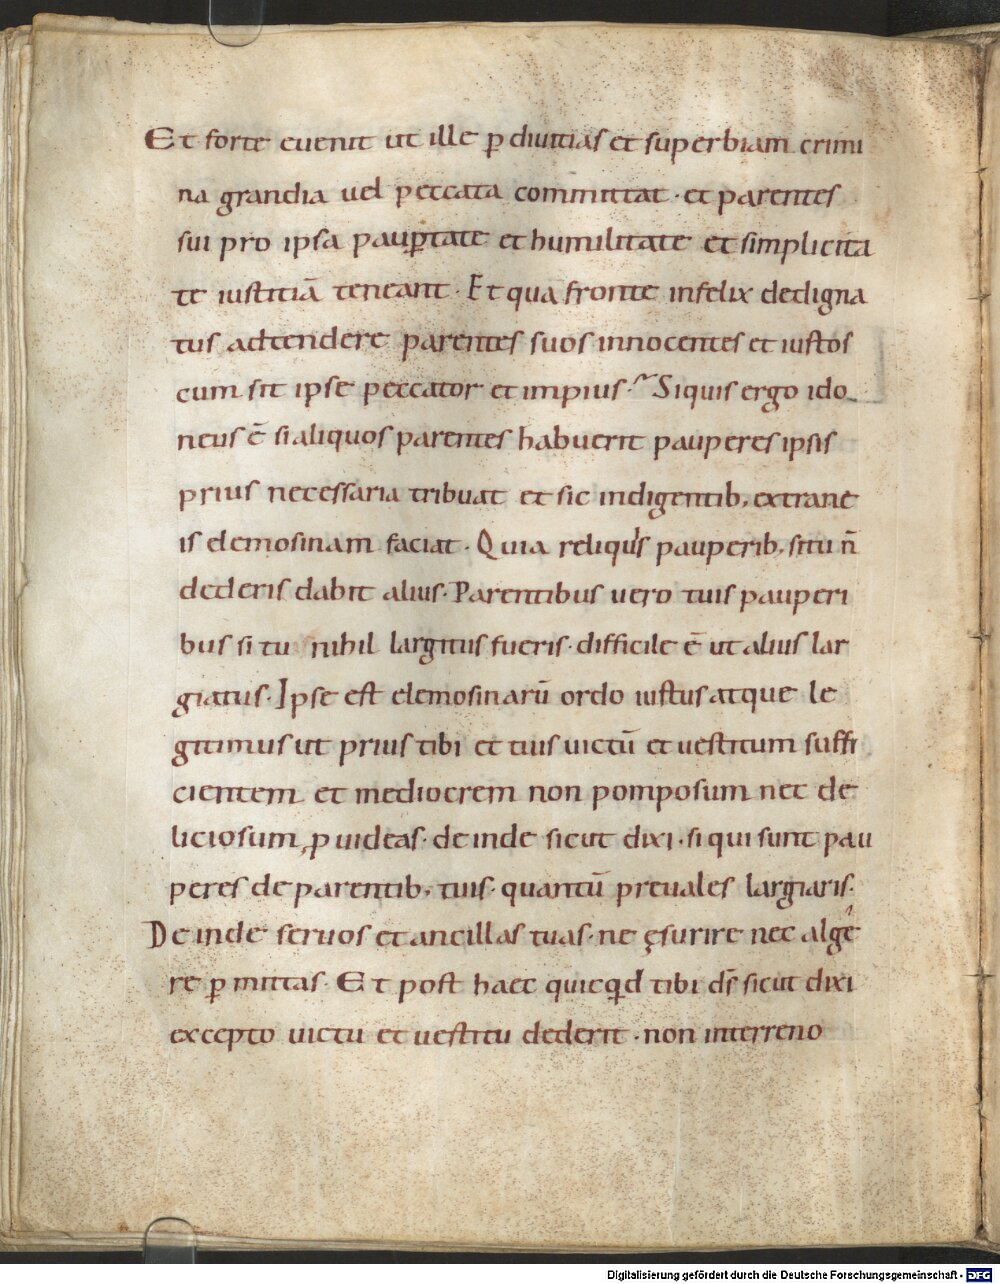 Et forte euenit ut ille ꝑ diuitias et superbiam crimi
na grandia uel peccata committat · et parentes
sui pro ipsa pauꝑtate et humilitate et simplicita
te iustitiā teneant · Et qua fronte infelix dedigna
tus adtendere parentes suos innocentes et iustos
cum sit ipse peccator et impius · Siquis ergo ido
neus ē si aliquos parentes habuerit pauperes ipsis
prius necessaria tribuat et sic indigentib; extrane
is elemosinam faciat · Quia reliquis pauperib; si tu n̄
dederis dabit alius · Parentibus uero tuis pauperi
bus si tu nihil largitus fueris · difficile ē ut alius lar
giatur · Ipse est elemosinarū ordo iustus atque le
gitimus ut prius tibi et tuis uictū et uestitum suffi
cientem et mediocrem non pomposum nec de
liciosum ꝓuideas · deinde sicut dixi · si qui sunt pau
peres de parentib; tuis · quantū preuales largiaris ·
Deinde seruos et ancillas tuas · ne ęsurire nec alge
re ꝑmittas · Et post haec quicqd tibi ds̄ sicut dixi
excepto uictu et uestitu dederit · non in terreno
Digitalisierung gefördert durch die Deutsche Forschungsgemeinschaft - DFG